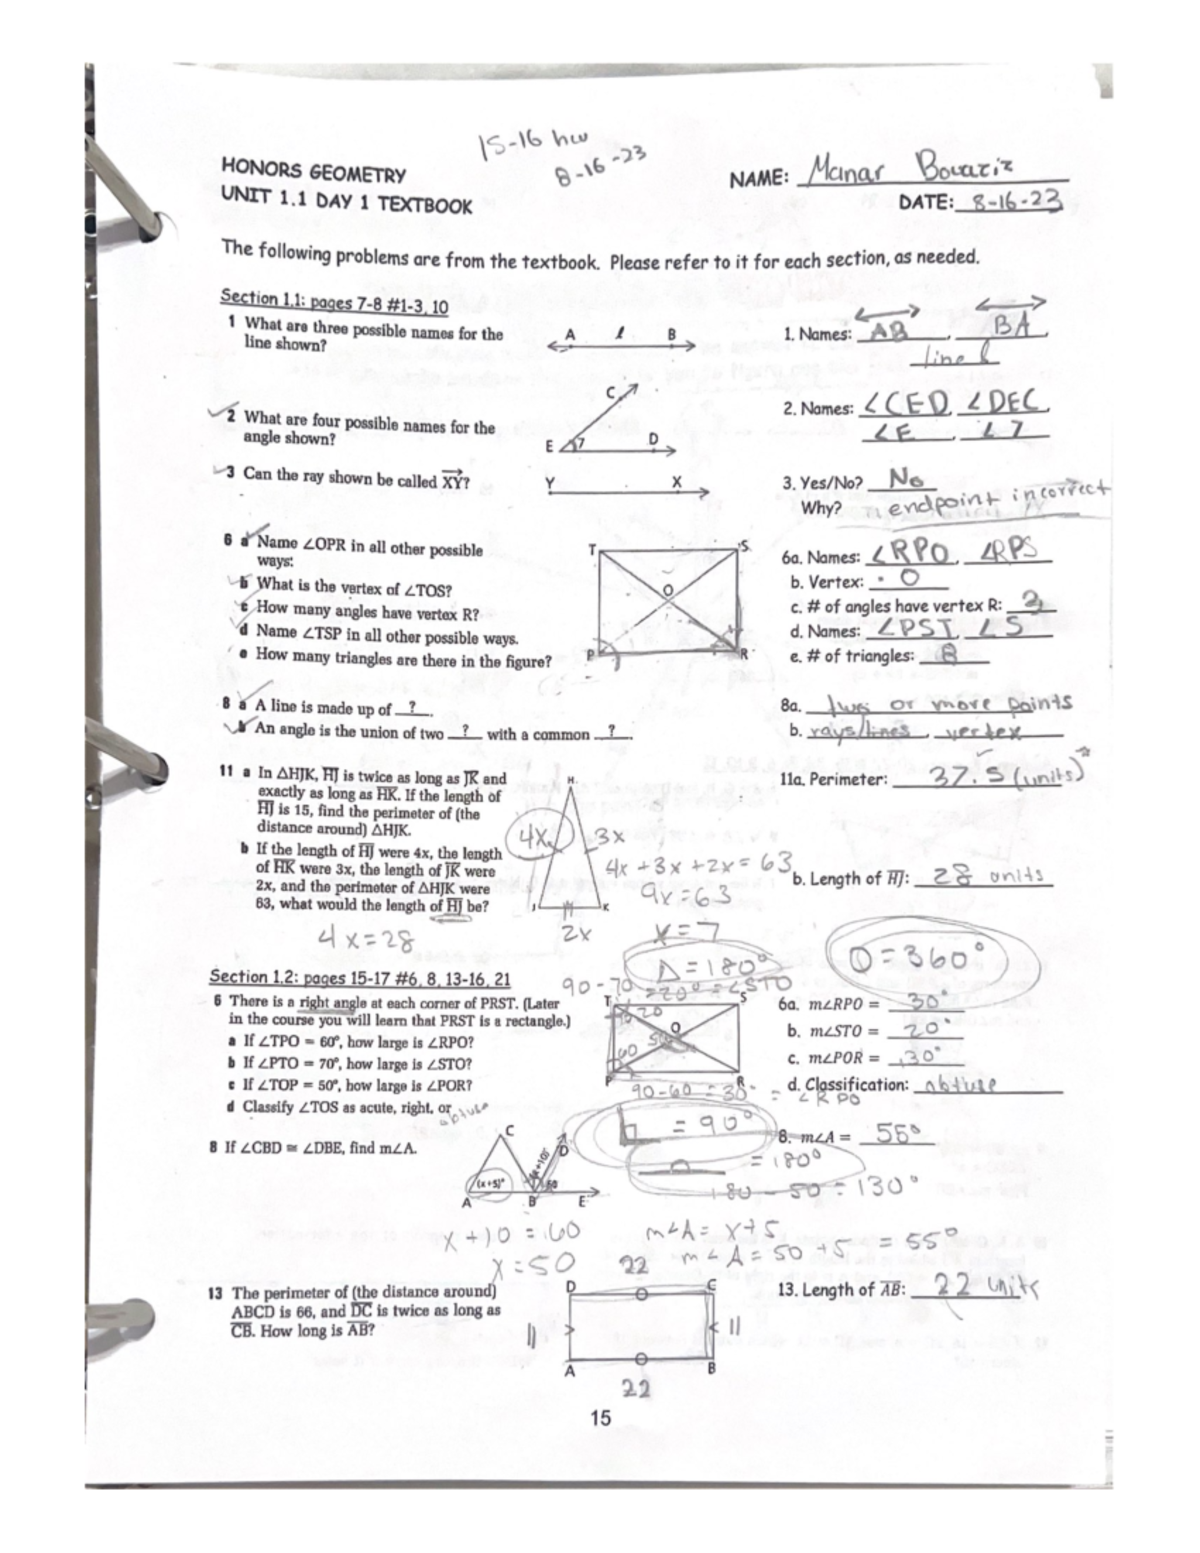 15-16 hw
8-16-23
HONORS GEOMETRY
UNIT 1.1 DAY 1 TEXTBOOK
NAME: Manar Bouaziz
DATE: 8-16-23
The following problems are from the textbook. Please refer to it for each section, as needed.
Section 1.1: pages 7-8 #1-3, 10
1 What are three possible names for the
line shown?
A l B
1. Names: AB, BA,
line l
2 What are four possible names for the
angle shown?
C
E 7 D
2. Names: ∠CED, ∠DEC,
∠E, ∠7
3 Can the ray shown be called XY?
Y X
3. Yes/No? No
Why? endpoint incorrect
6 a Name ∠OPR in all other possible
ways:
b What is the vertex of ∠TOS?
c How many angles have vertex R?
d Name ∠TSP in all other possible ways.
e How many triangles are there in the figure?
T S
O
P R
6a. Names: ∠RPO, ∠RPS
b. Vertex: O
c. # of angles have vertex R: 3
d. Names: ∠PST, ∠S
e. # of triangles: 8
8 a A line is made up of ?.
b An angle is the union of two ? with a common ?.
8a. two or more points
b. rays/lines, vertex
11 a In △HJK, HJ is twice as long as JK and
exactly as long as HK. If the length of
HJ is 15, find the perimeter of (the
distance around) △HJK.
b If the length of HJ were 4x, the length
of HK were 3x, the length of JK were
2x, and the perimeter of △HJK were
63, what would the length of HJ be?
H
4x 3x
J K
2x
4x + 3x + 2x = 63
9x = 63
x = 7
4x = 28
11a. Perimeter: 37.5 (units)
b. Length of HJ: 28 units
△ = 180°
O = 360°
Section 1.2: pages 15-17 #6, 8, 13-16, 21
90-70 = 20° = ∠STO
6 There is a right angle at each corner of PRST. (Later
in the course you will learn that PRST is a rectangle.)
a If ∠TPO = 60°, how large is ∠RPO?
b If ∠PTO = 70°, how large is ∠STO?
c If ∠TOP = 50°, how large is ∠POR?
d Classify ∠TOS as acute, right, or obtuse
T S
70 20
O
60 50
P R
90-60 = 30° = ∠RPO
6a. m∠RPO = 30°
b. m∠STO = 20°
c. m∠POR = 130°
d. Classification: obtuse
= 90°
= 180°
180 - 50 = 130°
8 If ∠CBD ≅ ∠DBE, find m∠A.
C
D
(x+5)° 60
A B E
8. m∠A = 55°
x + 10 = 60
x = 50
m∠A = x + 5
m∠A = 50 + 5 = 55°
13 The perimeter of (the distance around)
ABCD is 66, and DC is twice as long as
CB. How long is AB?
22
D C
11 11
A B
22
13. Length of AB: 22 units
15